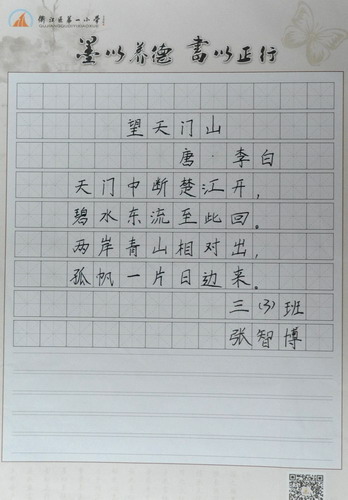 衢江区第一小学
墨以养德 書以正行
望天门山
唐·李白
天门中断楚江开，
碧水东流至此回。
两岸青山相对出，
孤帆一片日边来。
三（3）班
张智博